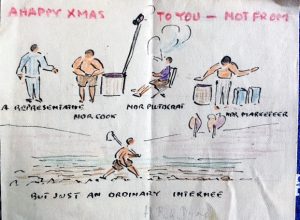 A HAPPY XMAS TO YOU — NOT FROM
A REPRESENTATIVE
NOR COOK
NOR PLUTOCRAT
NOR MARKETEER
BUT JUST AN ORDINARY INTERNEE